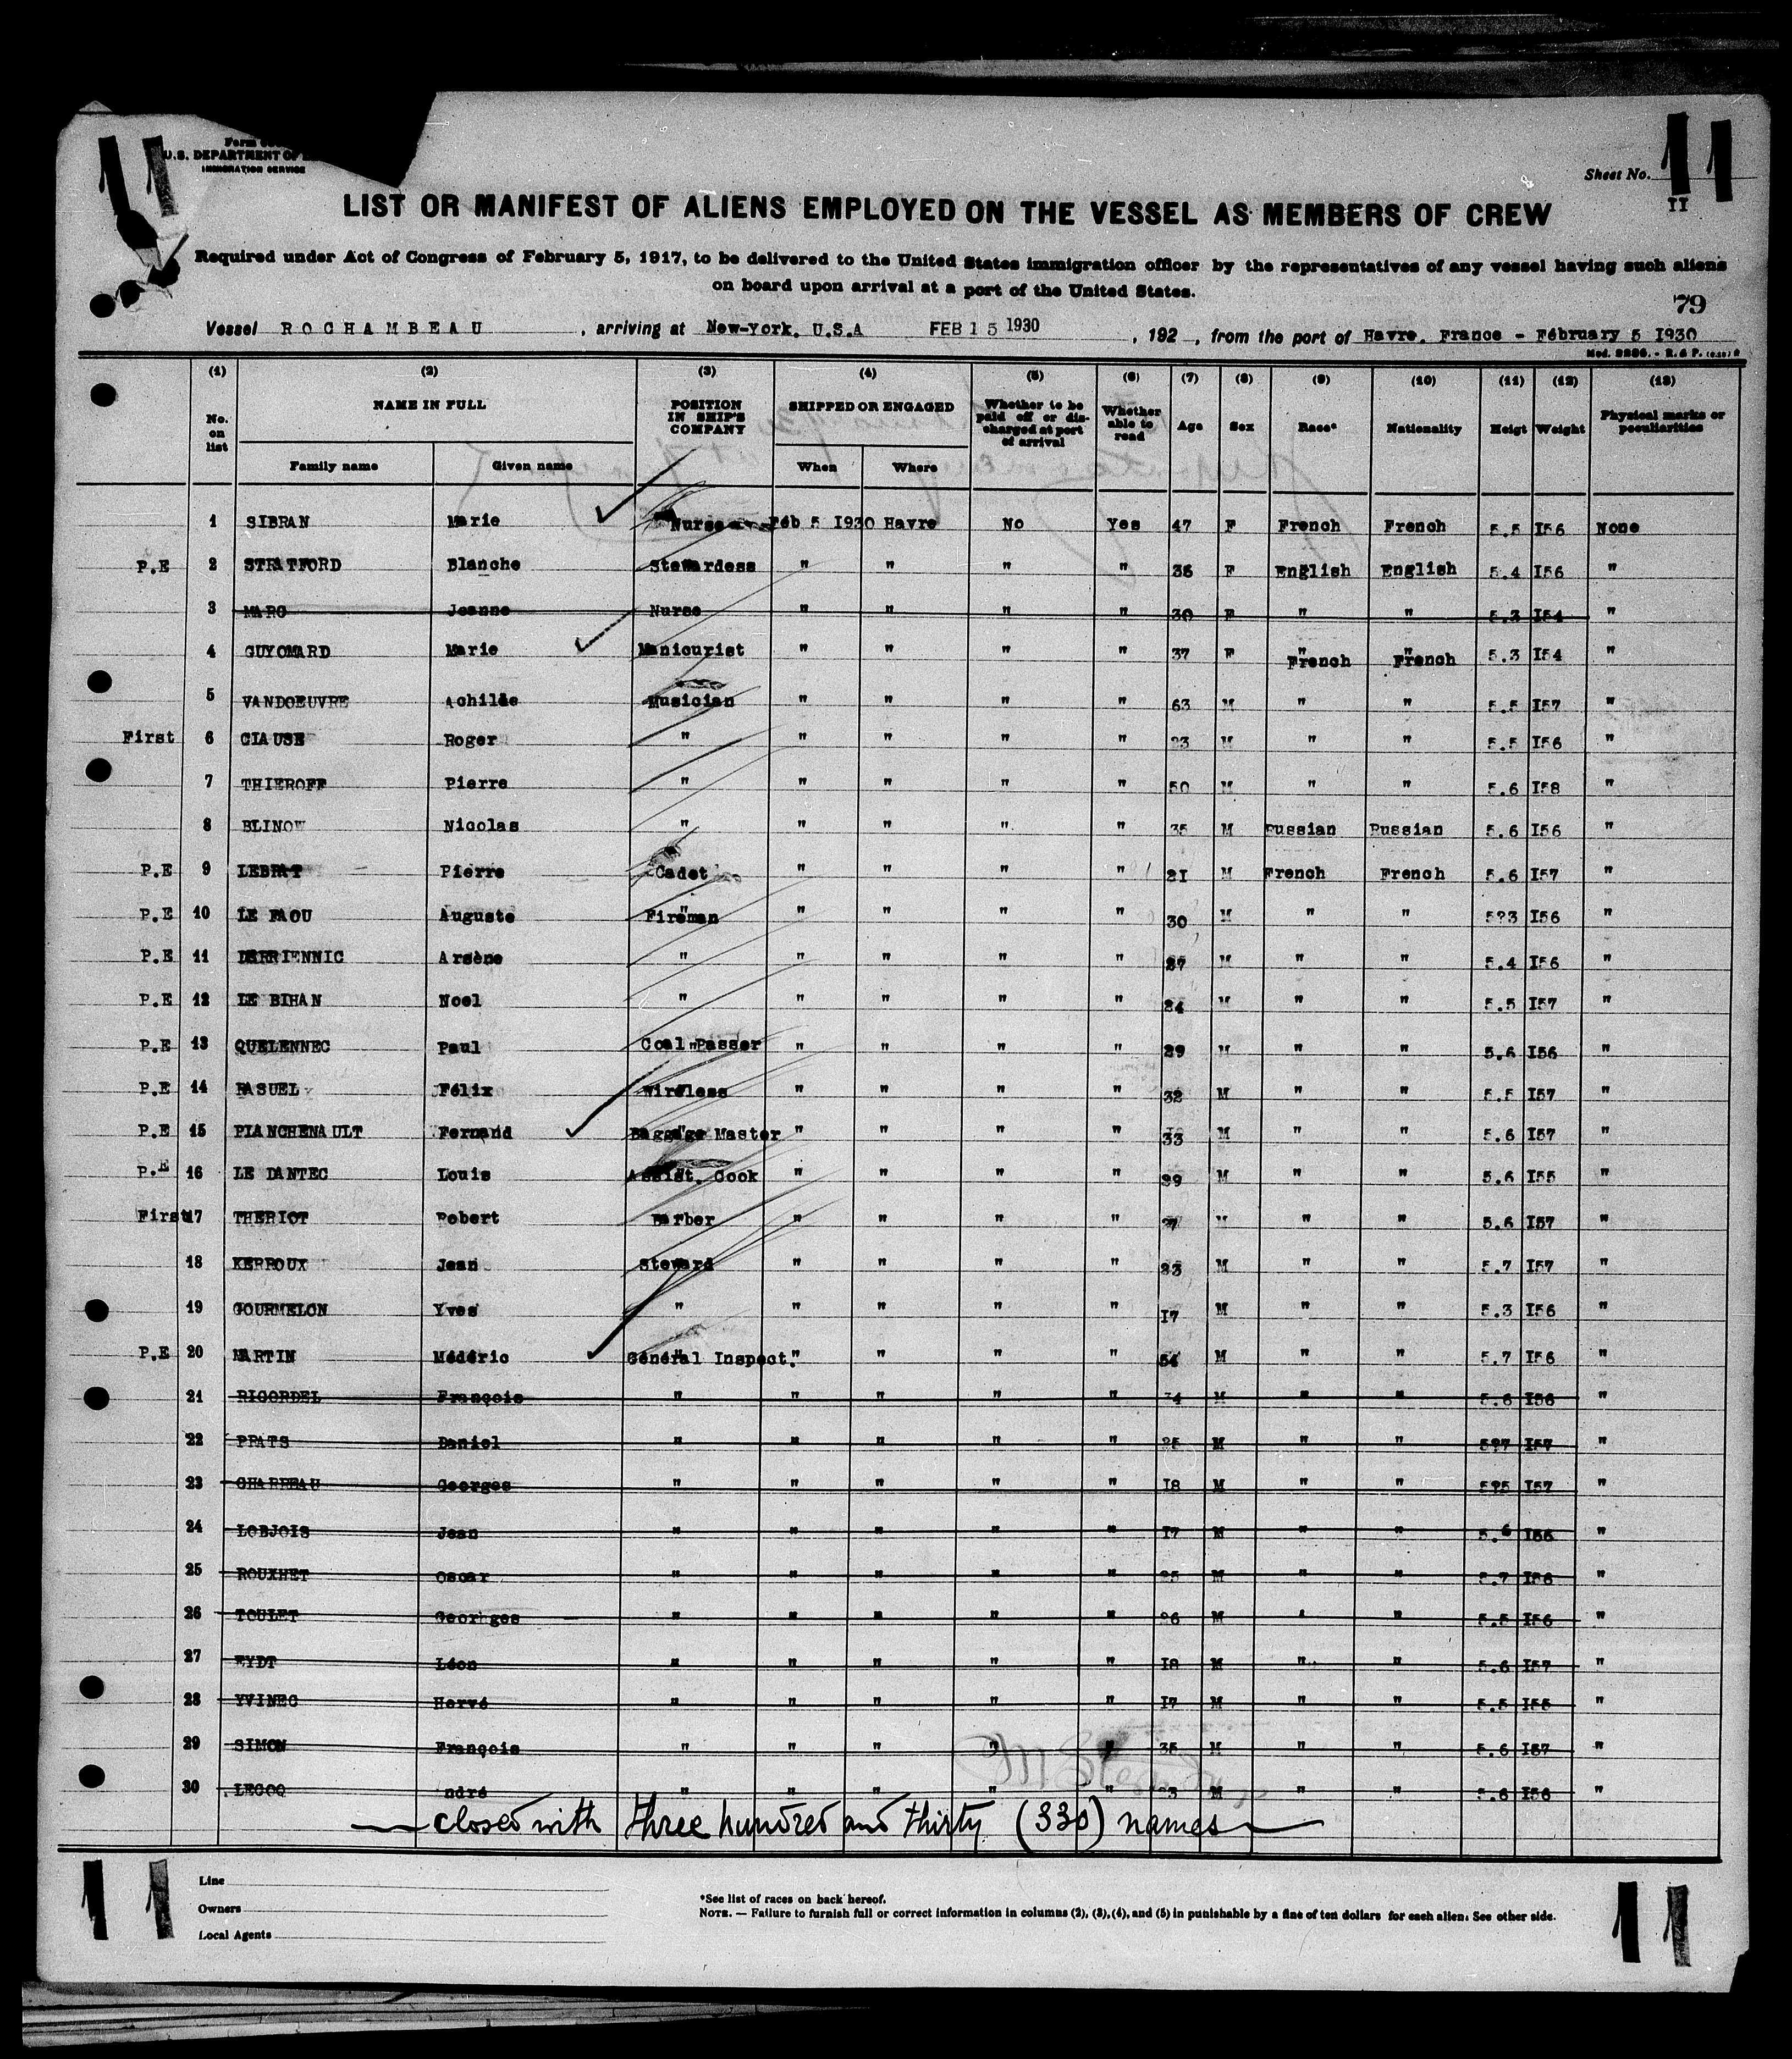 Form
U.S. DEPARTMENT OF
IMMIGRATION SERVICE
Sheet No. 11
II
LIST OR MANIFEST OF ALIENS EMPLOYED ON THE VESSEL AS MEMBERS OF CREW
Required under Act of Congress of February 5, 1917, to be delivered to the United States immigration officer by the representatives of any vessel having such aliens
on board upon arrival at a port of the United States.
79
Vessel ROCHAMBEAU , arriving at New-York. U.S.A FEB 15 1930 , 192 , from the port of Havre. France - February 5 I930
(1) (2) (3) (4) (5) (6) (7) (8) (9) (10) (11) (12) (13)
No. on list NAME IN FULL POSITION IN SHIP'S COMPANY SHIPPED OR ENGAGED Whether to be paid off or discharged at port of arrival Whether able to read Age Sex Race* Nationality Heigt Weight Physical marks or peculiarities
Family name Given name When Where
1 SIBRAN Marie Nurse Feb 5 I930 Havre No Yes 47 F French French 5.5 I56 None
P.E 2 STRATFORD Blanche Stewardess " " " " 36 F English English 5.4 I56 "
3 MARC Jeanne Nurse " " " " 30 F " " 5.3 I54 "
4 GUYOMARD Marie Manicurist " " " " 37 F " French " French 5.3 I54 "
5 VANDOEUVRE Achille Musician " " " " 63 M " " 5.5 I57 "
First 6 CIAUSE Roger " " " " " 23 M " " 5.5 I56 "
7 THIEROFF Pierre " " " " " 50 M " " 5.6 I58 "
8 BLINOW Nicolas " " " " " 35 M Russian Russian 5.6 I56 "
P.E 9 LEBRAT Pierre Cadet " " " " 2I M French French 5.6 I57 "
P.E 10 LE FAOU Auguste Fireman " " " " 30 M " " 5?3 I56 "
P.E 11 DERRIENNIC Arsène " " " " " 27 M " " 5.4 I56 "
P.E 12 LE BIHAN Noel " " " " " 24 M " " 5.5 I57 "
P.E 13 QUELENNEC Paul Coal Passer " " " " 29 M " " 5.6 I56 "
P.E 14 BASUEL Félix Wireless " " " " 32 M " " 5.5 I57 "
P.E 15 PIANCHENAULT Fernand Baggage Master " " " " 33 M " " 5.6 I57 "
P.E 16 LE DANTEC Louis Assist. Cook " " " " 29 M " " 5.6 I55 "
First 17 THERIOT Robert Barber " " " " M " " 5.6 I57 "
18 KERROUX Jean Steward " " " " 23 M " " 5.7 I57 "
19 GOURMELON Yves " " " " " I7 M " " 5.3 I56 "
P.E 20 MARTIN Médéric Général Inspect. " " " " 54 M " " 5.7 I56 "
21 RIGORDEL François " " " " " M " " 5.6 I56 "
22 PRATS Daniel " " " " " 25 M " " 5?7 I57 "
23 CHARBEAU Georges " " " " " I8 M " " 5?5 I57 "
24 LOBJOIS Jean " " " " " I7 M " " 5.6 I56 "
25 ROUXHET Oscar " " " " " 25 M " " 5.7 I56 "
26 TOULET Georhges " " " " " 26 M " " 5.5 I56 "
27 EYDT Léon " " " " " I8 M " " 5.6 I57 "
28 YVINEC Hervé " " " " " I7 M " " 5.5 I55 "
29 SIMON François " " " " " 35 M " " 5.6 I57 "
30 LECOQ ndré " " " " " 23 M " " 5.6 I56 "
closed with three hundred and thirty (330) names
Line
Owners
Local Agents
*See list of races on back hereof.
NOTE. — Failure to furnish full or correct information in columns (2), (3), (4), and (5) in punishable by a fine of ten dollars for each alien. See other side.
11 11